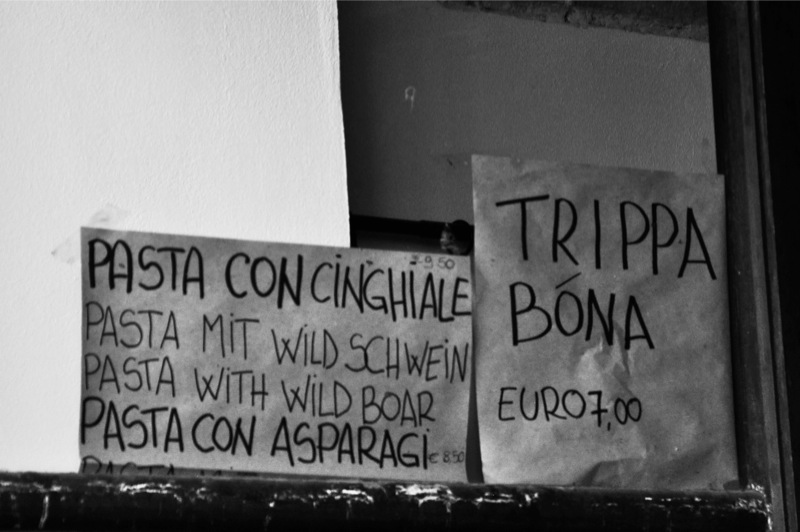 PASTA CON CINGHIALE € 9 50
PASTA MIT WILD SCHWEIN
PASTA WITH WILD BOAR
PASTA CON ASPARAGI € 8.50
TRIPPA
BÓNA
EURO 7,00